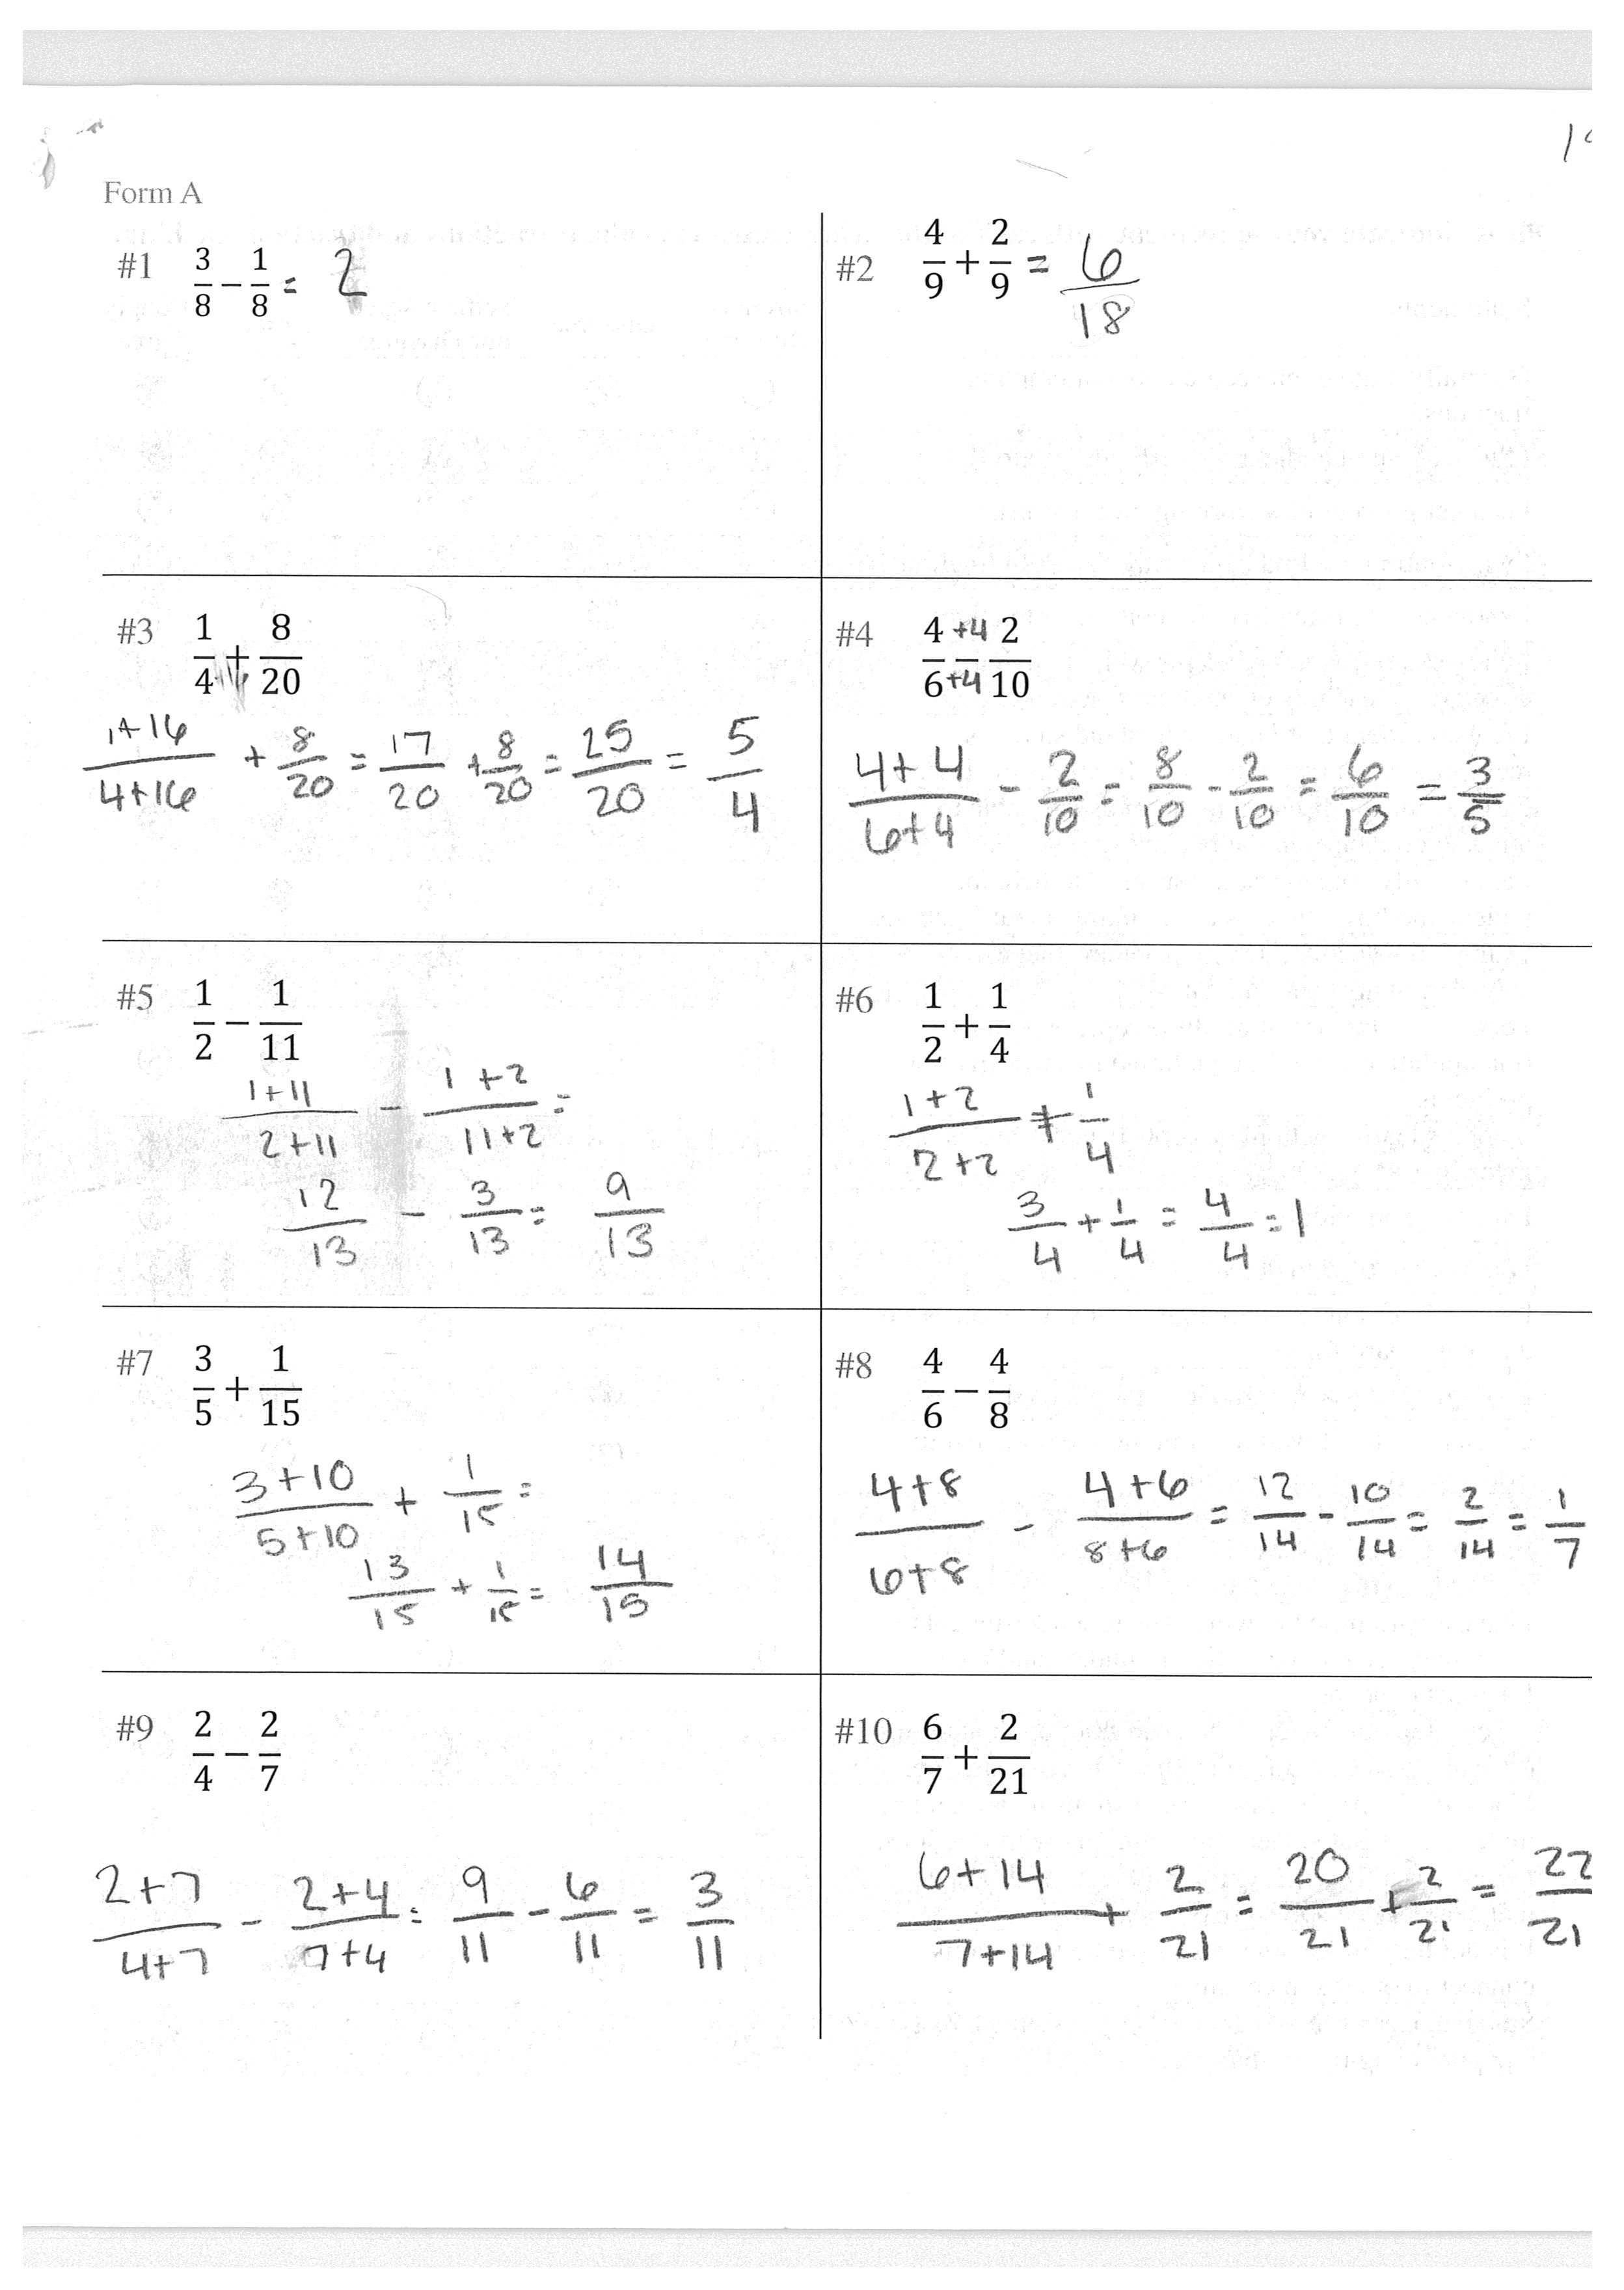 Form A
#1 3/8 − 1/8 = 2
#2 4/9 + 2/9 = 6/18
#3 1/4 + 8/20
(1+16)/(4+16) + 8/20 = 17/20 + 8/20 = 25/20 = 5/4
#4 4/6 +4/+4 − 2/10
(4+4)/(6+4) − 2/10 = 8/10 - 2/10 = 6/10 = 3/5
#5 1/2 − 1/11
(1+11)/(2+11) − (1+2)/(11+2) =
12/13 − 3/13 = 9/13
#6 1/2 + 1/4
(1+2)/(2+2) + 1/4
3/4 + 1/4 = 4/4 = 1
#7 3/5 + 1/15
(3+10)/(5+10) + 1/15 =
13/15 + 1/15 = 14/15
#8 4/6 − 4/8
(4+8)/(6+8) − (4+6)/(8+6) = 12/14 - 10/14 = 2/14 = 1/7
#9 2/4 − 2/7
(2+7)/(4+7) − (2+4)/(7+4) = 9/11 - 6/11 = 3/11
#10 6/7 + 2/21
(6+14)/(7+14) + 2/21 = 20/21 + 2/21 = 22/21